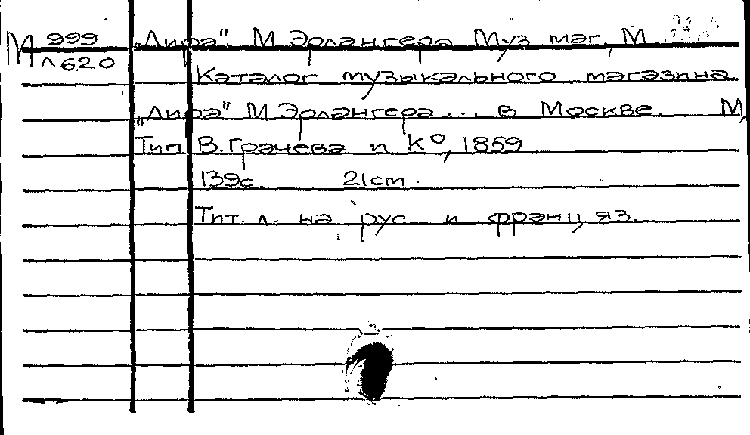 М 999
Л620
„Лира". М. Эрлангера. Муз. маг., М.
Каталог музыкального магазина
„Лира" М. Эрлангера... в Москве. М.,
Тип. В. Грачева и К°, 1859
139с. 21cm.
Тит. л. на рус. и франц. яз.